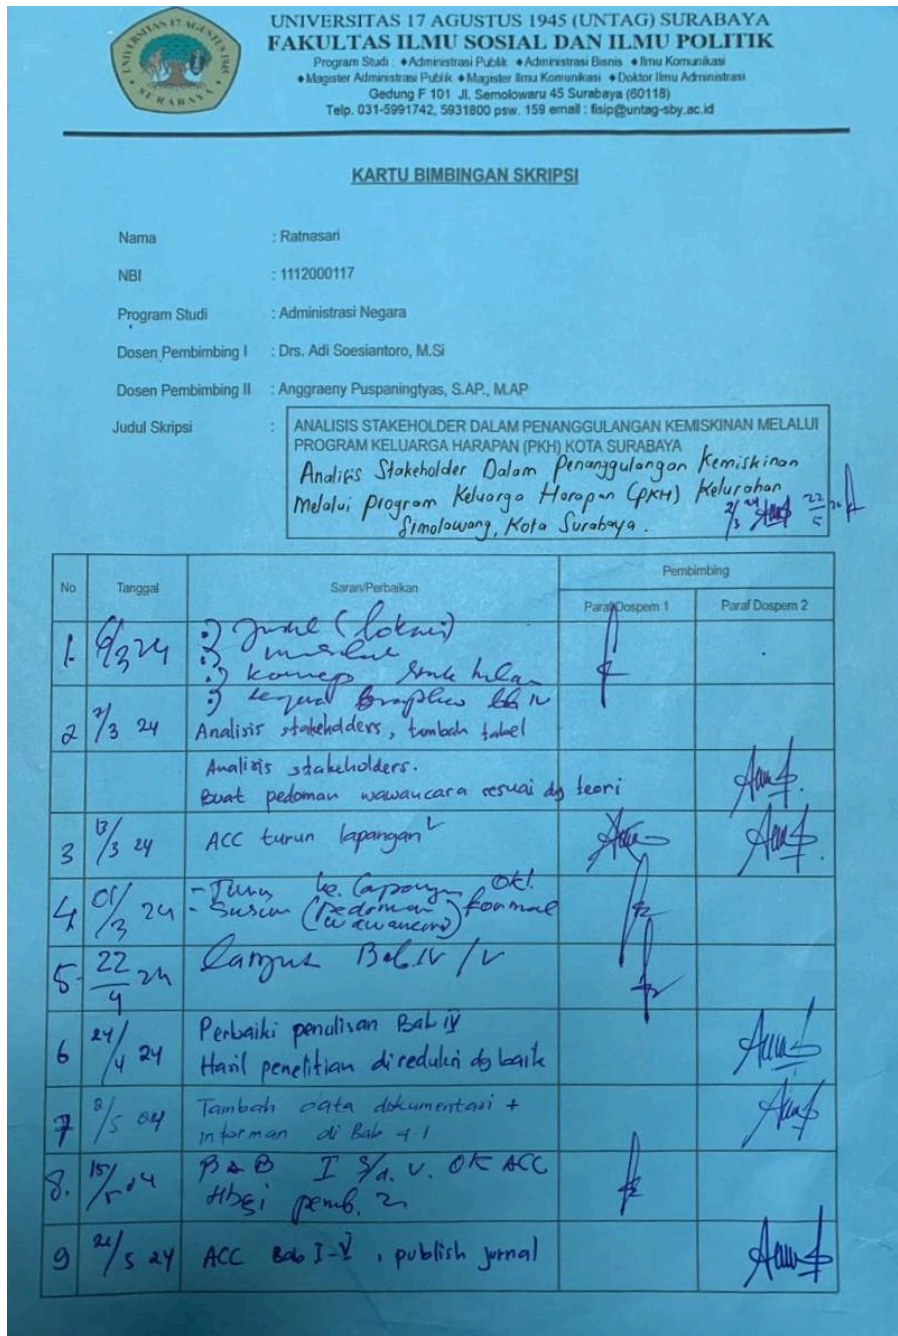 UNIVERSITAS 17 AGUSTUS 1945 SURABAYA
UNIVERSITAS 17 AGUSTUS 1945 (UNTAG) SURABAYA
FAKULTAS ILMU SOSIAL DAN ILMU POLITIK
Program Studi : ◆Administrasi Publik ◆Administrasi Bisnis ◆Ilmu Komunikasi
◆Magister Administrasi Publik ◆Magister Ilmu Komunikasi ◆Doktor Ilmu Administrasi
Gedung F 101 Jl. Semolowaru 45 Surabaya (60118)
Telp. 031-5991742, 5931800 psw. 159 email : fisip@untag-sby.ac.id
KARTU BIMBINGAN SKRIPSI
Nama : Ratnasari
NBI : 1112000117
Program Studi : Administrasi Negara
Dosen Pembimbing I : Drs. Adi Soesiantoro, M.Si
Dosen Pembimbing II : Anggraeny Puspaningtyas, S.AP., M.AP
Judul Skripsi : ANALISIS STAKEHOLDER DALAM PENANGGULANGAN KEMISKINAN MELALUI
PROGRAM KELUARGA HARAPAN (PKH) KOTA SURABAYA
Analisis Stakeholder Dalam Penanggulangan Kemiskinan
Melalui Program Keluarga Harapan (PKH) Kelurahan
Simolawang, Kota Surabaya.
No Tanggal Saran/Perbaikan Pembimbing
Paraf Dospem 1 Paraf Dospem 2
1. 6/3 24 :) Judul (lokasi)
:)
:) konsep
:)
2 7/3 24 Analisis stakeholders, tambah tabel
Analisis stakeholders.
Buat pedoman wawancara sesuai dg teori
3 13/3 24 ACC turun lapangan
4 01/3 24 - Turun ke Lapangan OK!
- Susun (Pedoman wawancara) formal
5. 22/4 24 Lanjut Bab IV / V
6 24/4 24 Perbaiki penulisan Bab IV
Hasil penelitian direduksi dg baik
7 8/5 24 Tambah data dokumentasi +
informan di Bab 4.1
8. 15/5 24 BAB I s/d. V. OK ACC
pemb. 2
9 22/5 24 ACC Bab I-V, publish jurnal